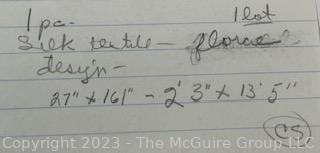 1 pc. 1 lot
silk textile -
design -
27" x 161" - 2' 3" x 13' 5"
CS
Copyright 2023 - The McGuire Group LLC